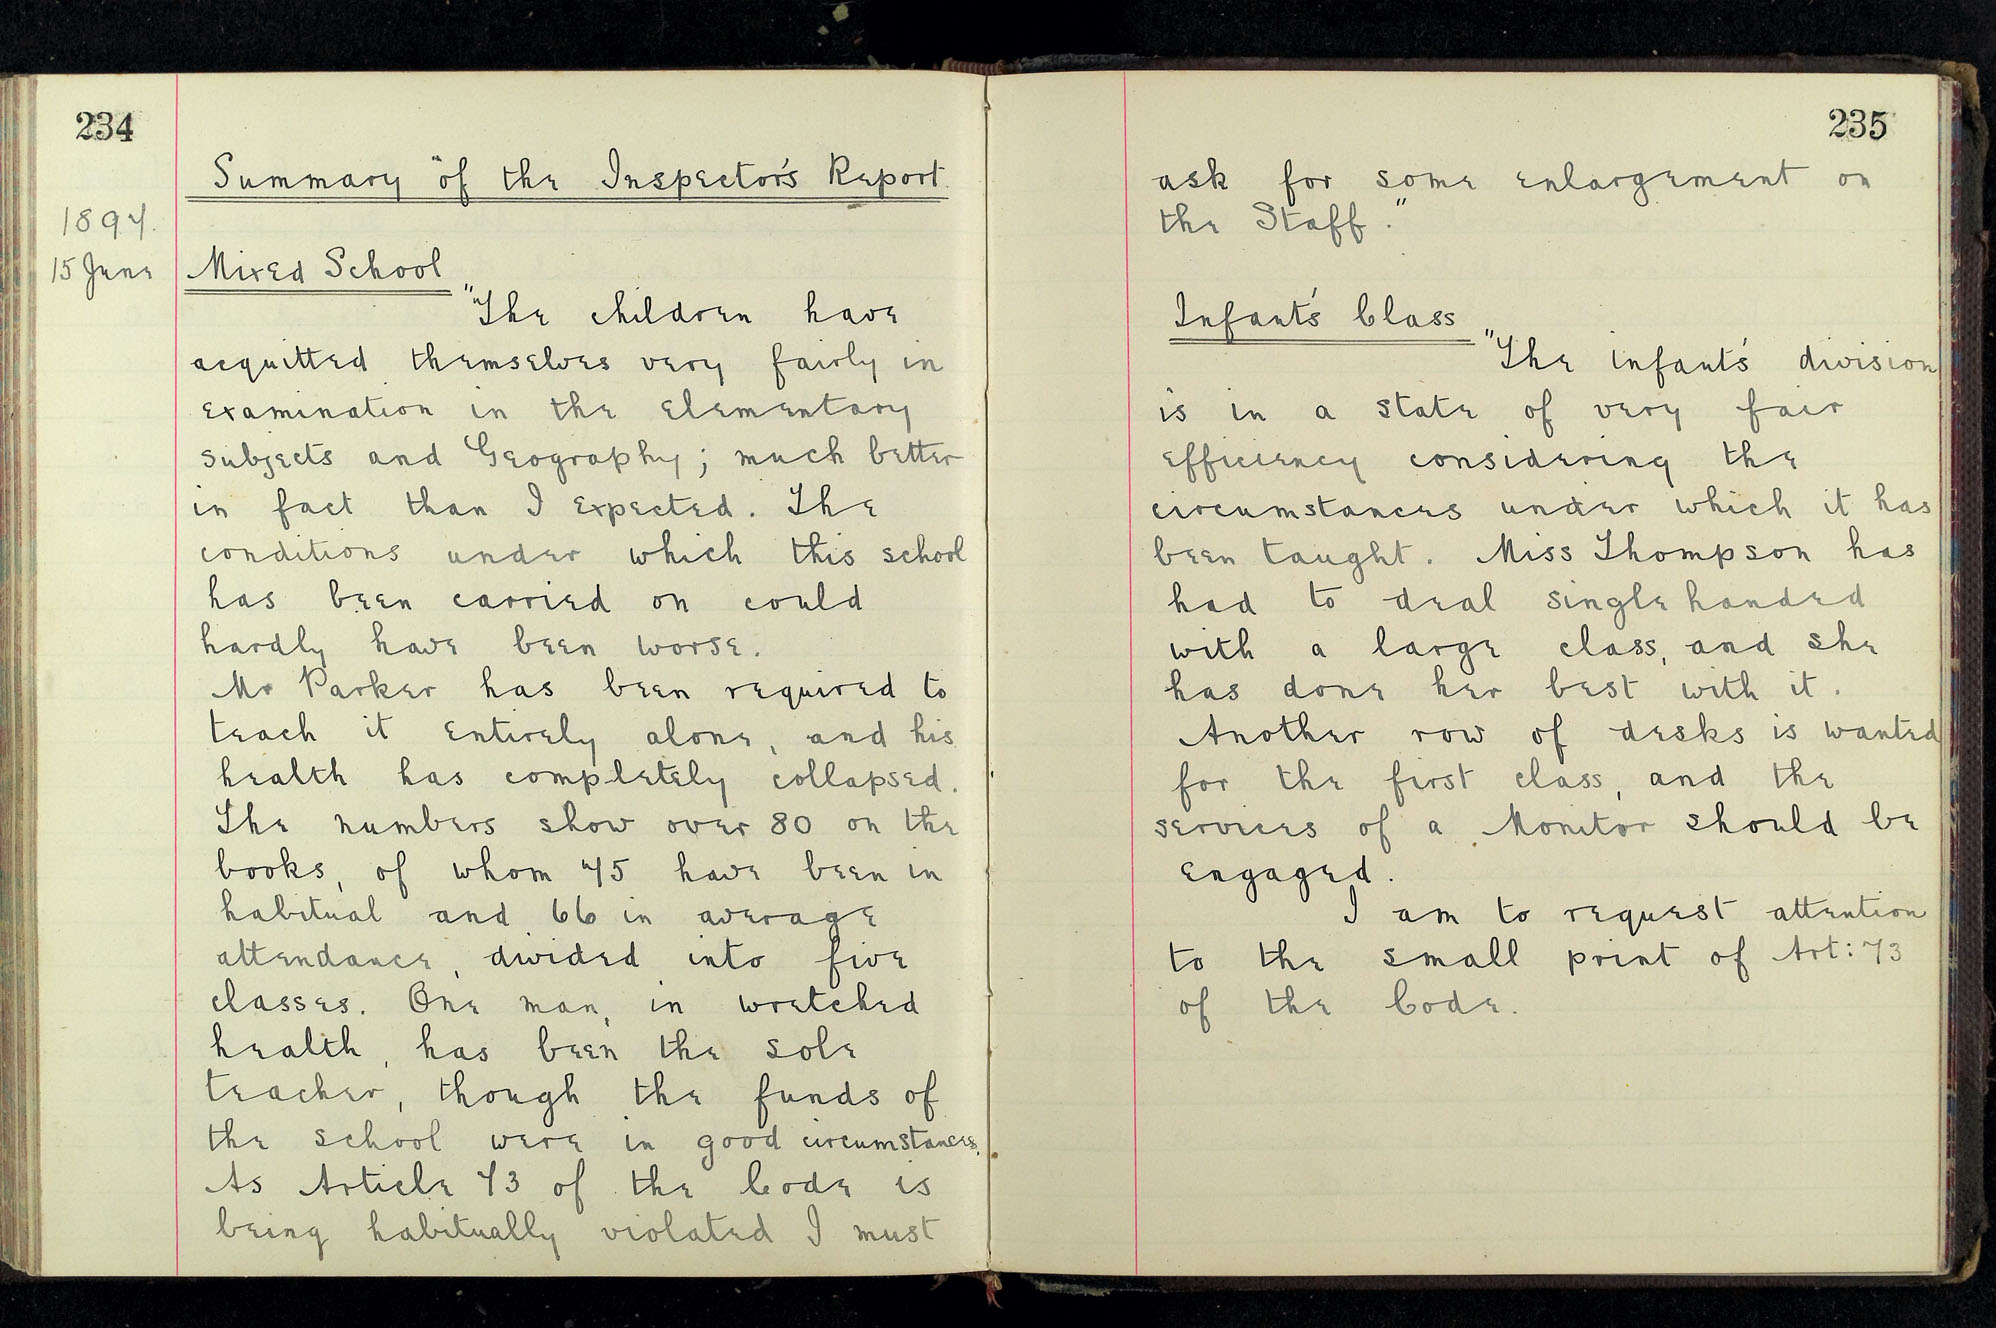 234
Summary "of the Inspector's Report.
1897.
15 June
Mixed School
"The children have
acquitted themselves very fairly in
examination in the elementary
subjects and Geography; much better
in fact than I expected. The
conditions under which this school
has been carried on could
hardly have been worse.
Mr Parker has been required to
teach it entirely alone, and his
health has completely collapsed.
The numbers show over 80 on the
books, of whom 75 have been in
habitual and 66 in average
attendance, divided into five
classes. One man, in wretched
health, has been the sole
teacher, though the funds of
the school were in good circumstances.
As Article 73 of the Code is
being habitually violated I must
235
ask for some enlargement on
the Staff."
Infant's Class
"The infant's division
is in a state of very fair
efficiency considering the
circumstances under which it has
been taught. Miss Thompson has
had to deal single handed
with a large class, and she
has done her best with it.
Another row of desks is wanted
for the first class, and the
services of a Monitor should be
engaged.
I am to request attention
to the small print of Art: 73
of the Code.